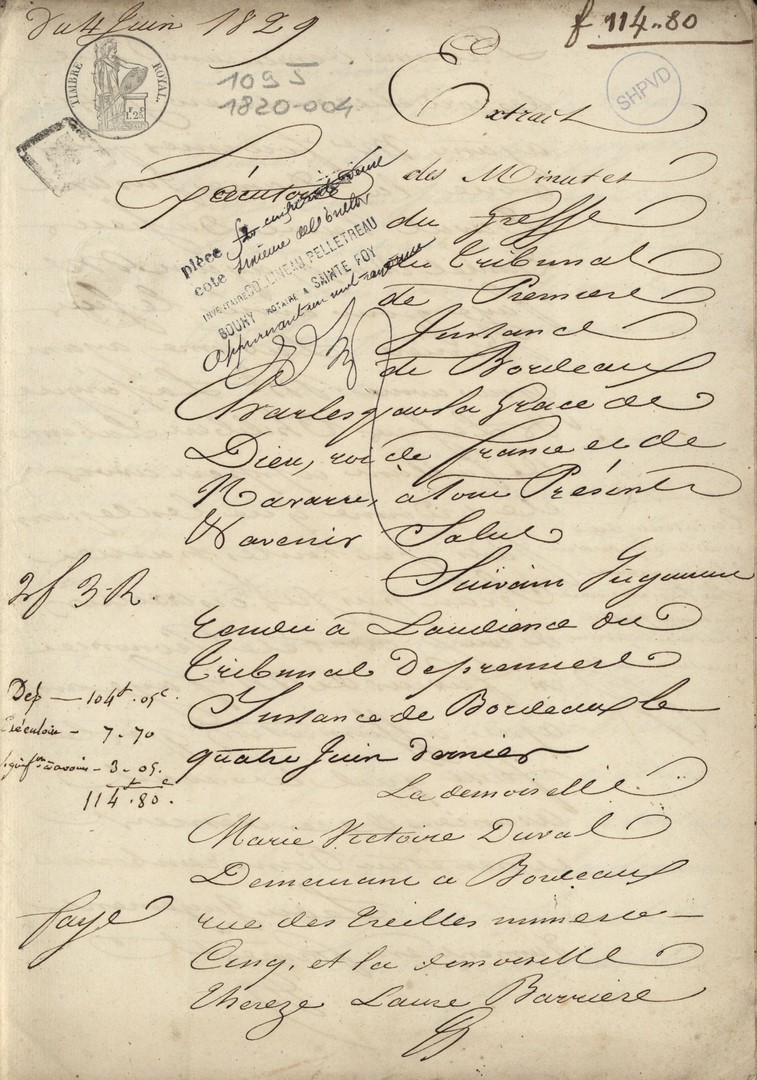 Du 4 Juin 1829
f 114..80
TIMBRE ROYAL
1095
1820-004
SHPVD
Extrait
Exécutoire
des Minutes
du Greffe
du Tribunal
de Premiere
Instance
de Bordeaux
pièce
cote
INVENTAIRE COLINEAU PELLETREAU
GOUNY NOTAIRE A SAINTE FOY
Charles par la Grace de
Dieu, roi de france et de
Navarre, a tous Présents
et avenir Salut
Suivant Jugement
2f 3-R.
rendu a Laudience du
tribunal de premiere
Instance de Bordeaux le
quatre Juin dernier
Dep — 104f.05c.
Exécutoire - 7-70
- 3-05.
114f.80c.
La demoiselle
Marie Victoire Duval
Demeurant a Bordeaux
rue des treilles numero
Cinq, et la demoiselle
thereze Laure Barriere